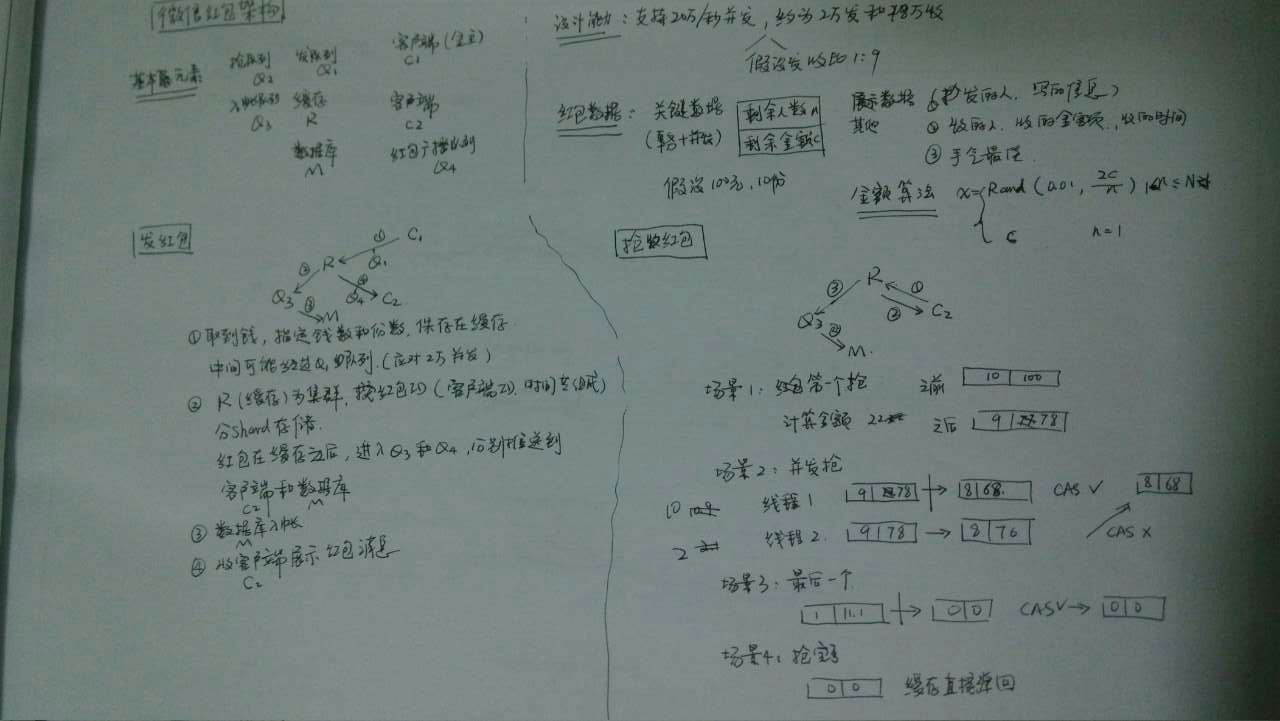 微信红包架构
基本元素
抢队列 发队列 客户端(金主)
Q2 Q1 C1
入账队列 缓存 客户端
Q3 R C2
数据库 红包广播队列
M Q4
设计能力：支持20万/秒并发，约为2万发和18万收
假设发收比1:9
红包数据： 关键数据 剩余人数n
(聚合+并发) 剩余金额C
展示数据 ① 发的人、写的信息)
其他 ② 收的人、收的金额、收的时间
③ 手气最佳.
假设100元，10份
金额算法 x= Rand (0.01, 2C/n) 1<n≤N
C n=1
发红包
① C1
② R Q1
Q3 ③ M Q4 ④ C2
①取到钱，指定钱数和份数，保存在缓存
中间可能经过Q1队列.(应对2万并发)
② R(缓存)为集群，按红包ID(客户端ID,时间等组成)
分shard存储.
红包在缓存之后，进入Q3和Q4，分别推送到
客户端和数据库
C2 M
③ 数据库入帐
M
④ 收客户端展示红包消息
C2
抢收红包
③ R ①
Q3 ② C2
④ M.
场景1：红包第一个抢 之前 10 100
计算金额 22 之后 9 78
场景2：并发抢
10 线程1 9 78 → 8 68. CAS ✓ 8 68
2 线程2. 9 78 → 8 76 CAS ×
场景3：最后一个
1 11.1 → 0 0 CAS✓→ 0 0
场景4：抢空了
0 0 缓存直接弹回